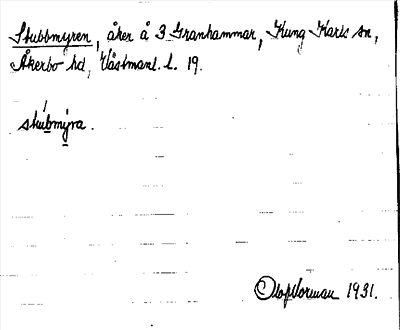 Stubbmyren, åker å 3 Granhammar, Kung Karls sn,
Åkerbo hd, Västmanl. l. 19.
stubmỳra.
Olof Norman 1931.